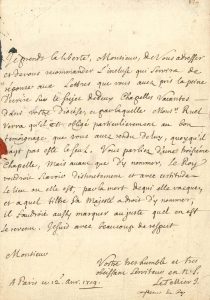 Je prends la liberté, Monsieur, de vous adresser
et de vous recommander l'incluse qui servira de
réponse aux Lettres que vous avez pris la peine
d'écrire sur le sujet de deux Chapelles vacantes
dans votre Diocèse, et par laquelle Mons. Ruel
verra qu'il est obligé particulierement au bon
témoignage que vous avez rendu de luy, quoyqu'il
n'ayt pas esté le seul. Vous parliez d'une troisième
Chapelle. Mais avant que d'y nommer, le Roy
voudroit savoir distinctement et avec certitude
le lieu ou elle est, par la mort de qui elle vaque,
et a quel titre Sa Majesté a droit d'y nommer,
il faudroit aussy marquer au juste quel en est
le revenu. Je suis avec beaucoup de respect
Monsieur
Votre tres humble et tres
obeissant serviteur en N.S.
A Paris ce 12 avr.
Le Tellier J.